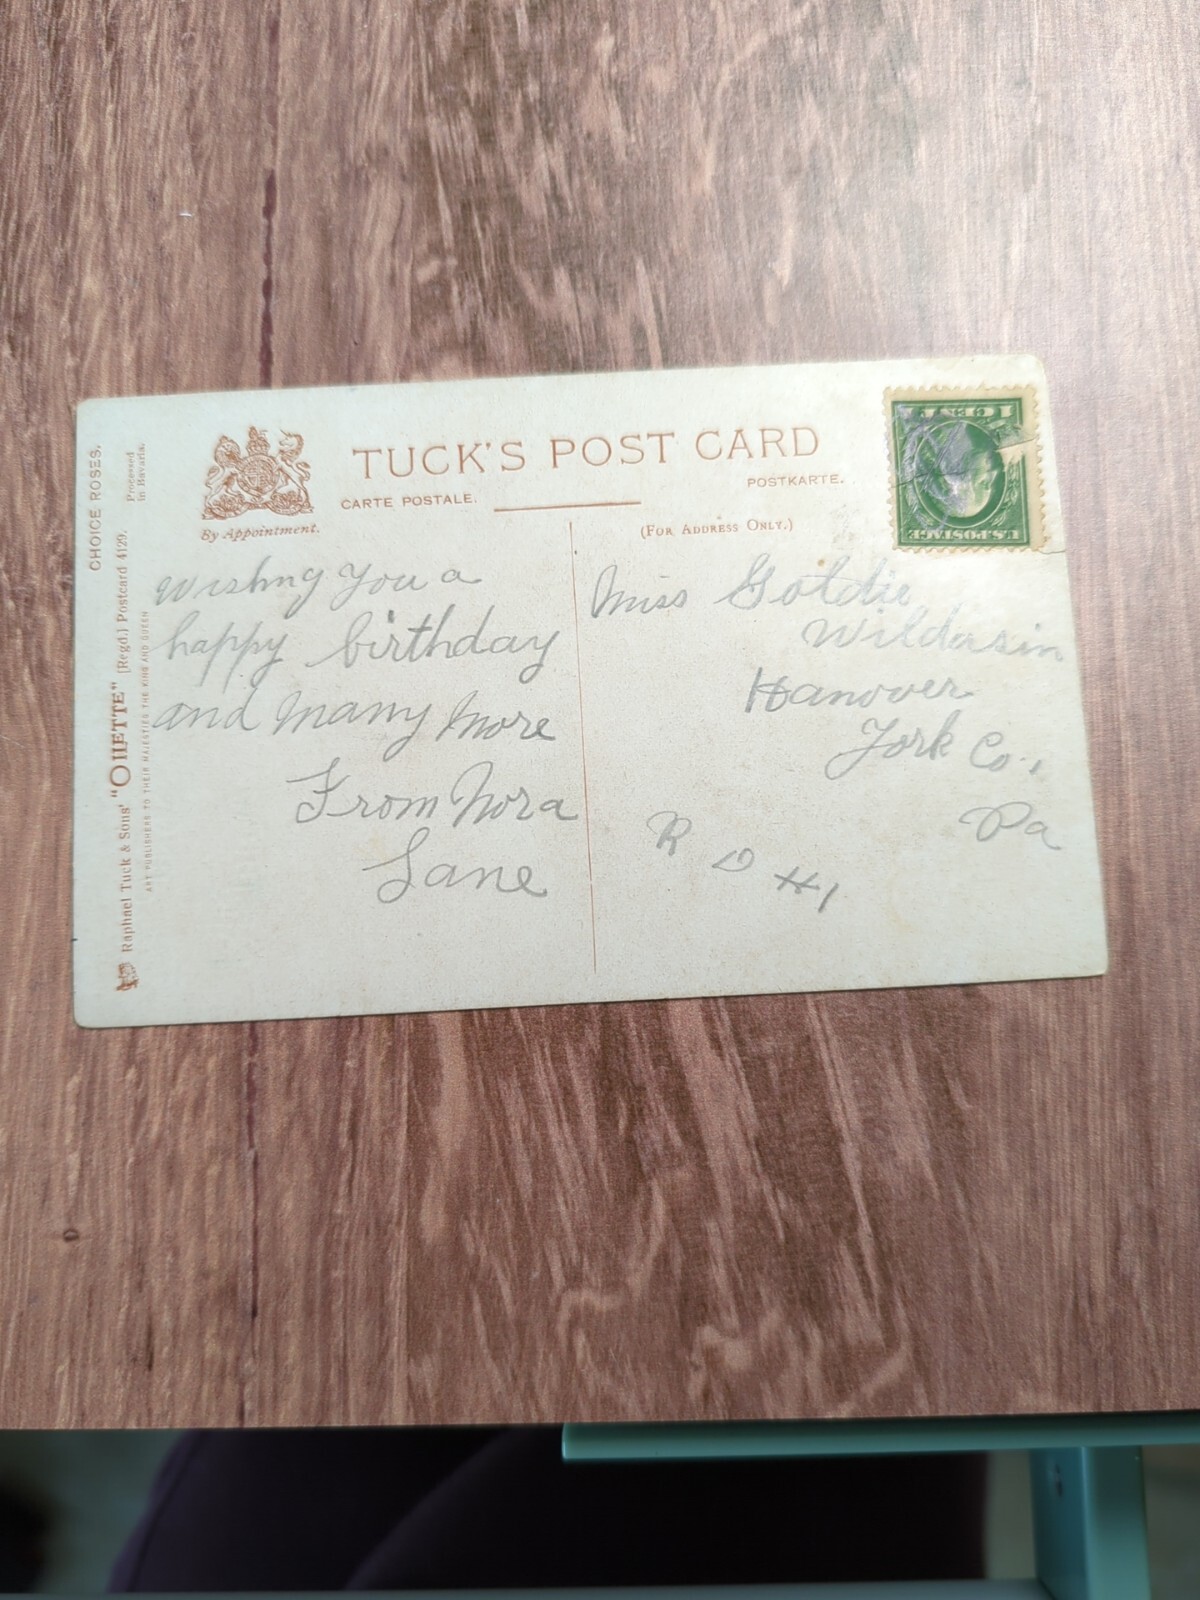 TUCK'S POST CARD
CARTE POSTALE.
POSTKARTE.
By Appointment.
(FOR ADDRESS ONLY.)
1 CENT 1
U.S. POSTAGE
CHOICE ROSES.
Processed
in Bavaria.
Raphael Tuck & Sons' "OILETTE" [Regd.] Postcard 4129.
ART PUBLISHERS TO THEIR MAJESTIES THE KING AND QUEEN
Wishing you a
happy birthday
and many more
From Nora
Lane
Miss Goldie
Wildasin
Hanover
York Co.,
Pa
R D #1